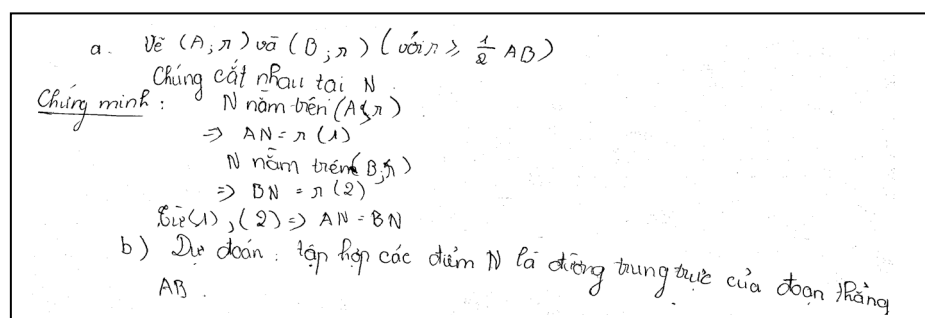 a. Vẽ (A; r) và (B; r) (với r ≥ 1/2 AB)
Chúng cắt nhau tại N.
Chứng minh: N nằm trên (A; r)
=> AN = r (1)
N nằm trên (B; r)
=> BN = r (2)
Từ (1), (2) => AN = BN
b) Dự đoán: tập hợp các điểm N là đường trung trực của đoạn thẳng
AB.